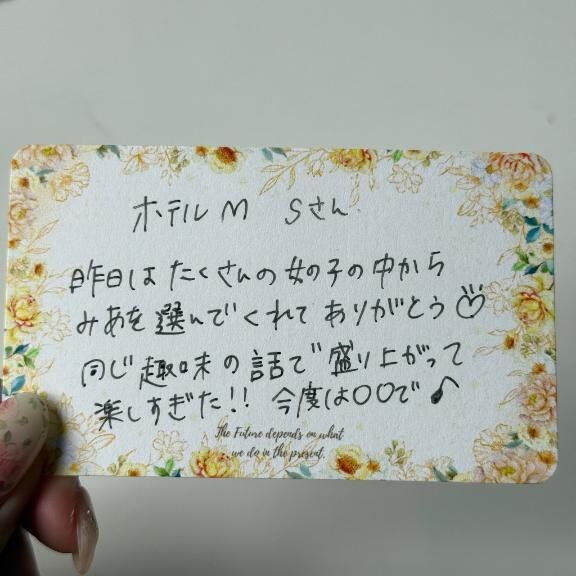 ホテルM Sさん
昨日は たくさんの 女の子の中から
みあを 選んで くれて ありがとう♡
同じ 趣味の 話で 盛り上がって
楽しすぎた!! 今度は〇〇で♪
The Future depends on what
we do in the present.